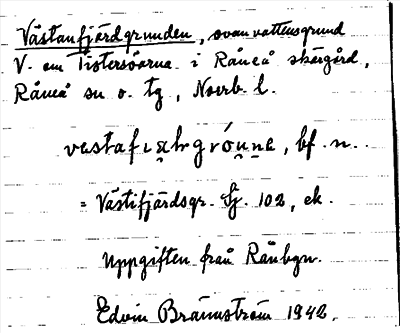 Västanfjärdgrunden, ovanvattensgrund
V. om Tistersöarna i Råneå skärgård,
Råneå sn o. tg, Norrb. l.
bf. n.
= Västifjärdsgr. Sj. 102, ek.
Uppgiften från Rånbgn.
Edvin Brännström 1942.